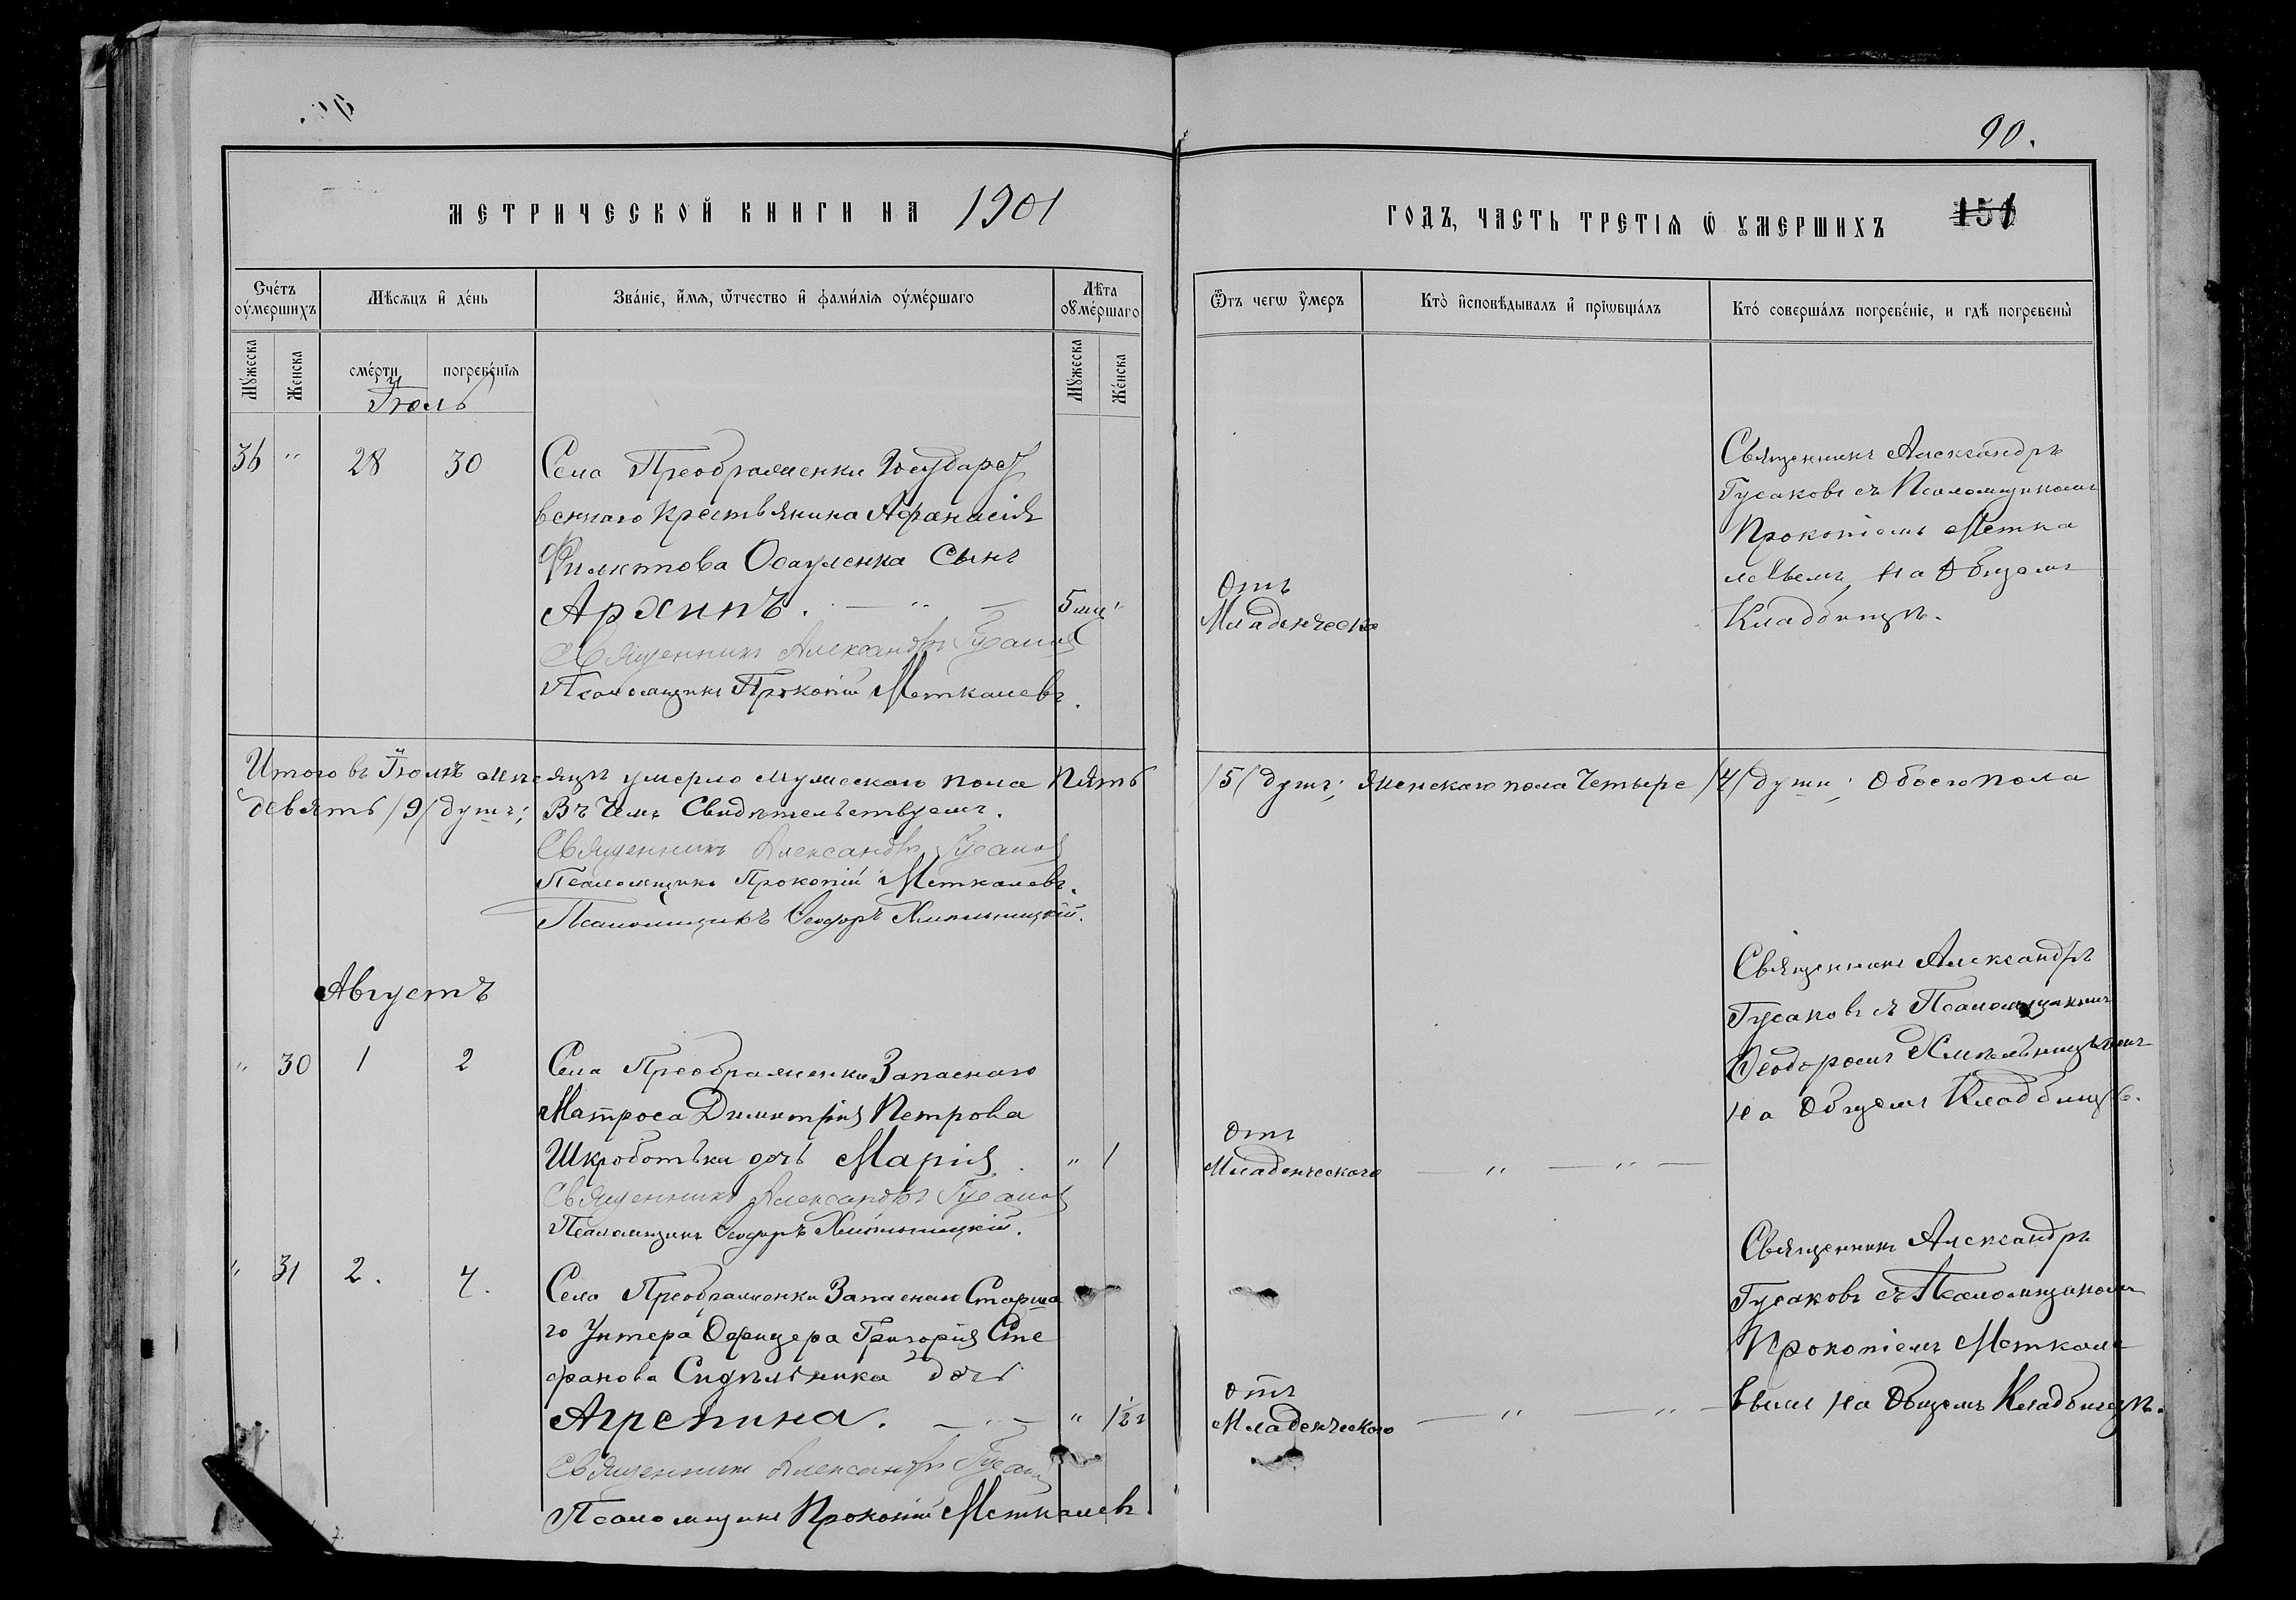 90.
МЕТРИЧЕСКОЙ КНИГИ НА 1901
ГОДЪ, ЧАСТЬ ТРЕТІЯ Ѿ УМЕРШИХЪ 151
Сче́тъ оу́мершихъ
Мѣсяцъ и де́нь
Зва́ніе, и́мя, ѿтчество и фами́лія оуме́ршаго
Лѣта оуме́ршаго
Ѿтъ чегѡ у́меръ
Кто̀ исповѣдывалъ и҆ прїѡбща́лъ
Кто́ соверша́лъ погребе́ніе, и гдѣ погребены̀
Му́жеска
Же́нска
сме́рти
погребе́нія
Му́жеска
Же́нска
Іюль
36 " 28 30
Села Преображенки Государст
веннаго Крестьянина Афанасія
Филиктова Осауленка сынъ
Архипъ. — " —
5 мц "
Священникъ Александръ Гусаковъ
Псаломщикъ Прокопій Меткалевъ.
Отъ
Младенческо
Священникъ Александръ
Гусаковъ съ Псаломщикомъ
Прокопіемъ Метка
левымъ на Общемъ
Кладбищѣ.
Итого въ Іюлѣ мѣсяцѣ умерло мужескаго пола пять /5/ душъ; женскаго пола четыре /4/ души; обоего пола
девять /9/ душъ; Въ чемъ свидѣтельствуемъ.
Священникъ Александръ Гусаковъ
Псаломщикъ Прокопій Меткалевъ.
Псаломщикъ Ѳеодоръ Хмѣльницкій.
Августъ
" 30 1 2
Села Преображенки Запаснаго
Матроса Димитрія Петрова
Шкроботька дочь Марія.
" 1
Священникъ Александръ Гусаковъ
Псаломщикъ Ѳеодоръ Хмѣльницкій.
Отъ
Младенческаго — " — " —
Священникъ Александръ
Гусаковъ съ Псаломщикомъ
Ѳеодоромъ Хмѣльницкимъ
на Общемъ Кладбищѣ.
" 31 2. 4.
Села Преображенки Запаснаго Старша
го Унтеръ Офицера Григорія Сте
фанова Сидѣльника дочь
Агрепина. — " —
" 1½ г
Священникъ Александръ Гусаковъ
Псаломщикъ Прокопій Меткалевъ.
отъ
Младенческого — " — " —
Священникъ Александръ
Гусаковъ съ Псаломщикомъ
Прокопіемъ Меткале
вымъ на Общемъ Кладбищѣ.